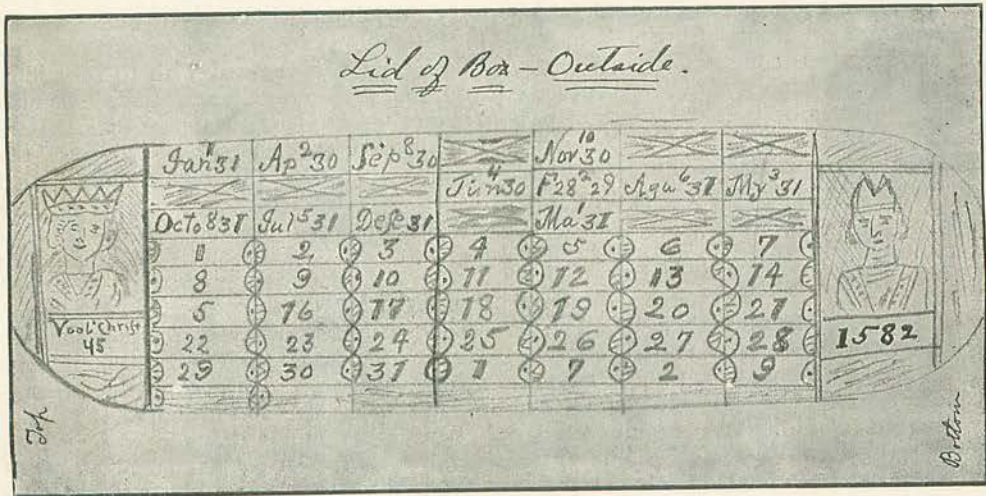 Lid of Box - Outside.
Jan 11 31 Ap 2 30 Sep 8 30 Nov 10 30
Jun 4 30 F 28 2 29 Agu 6 31 My 3 31
Octo 8 31 Jul 5 31 Dese 31 Ma 1 31
1 2 3 4 5 6 7
8 9 10 11 12 13 14
5 16 17 18 19 20 21
22 23 24 25 26 27 28
29 30 31 1 7 2 9
Christ
45
1582
Top
Bottom